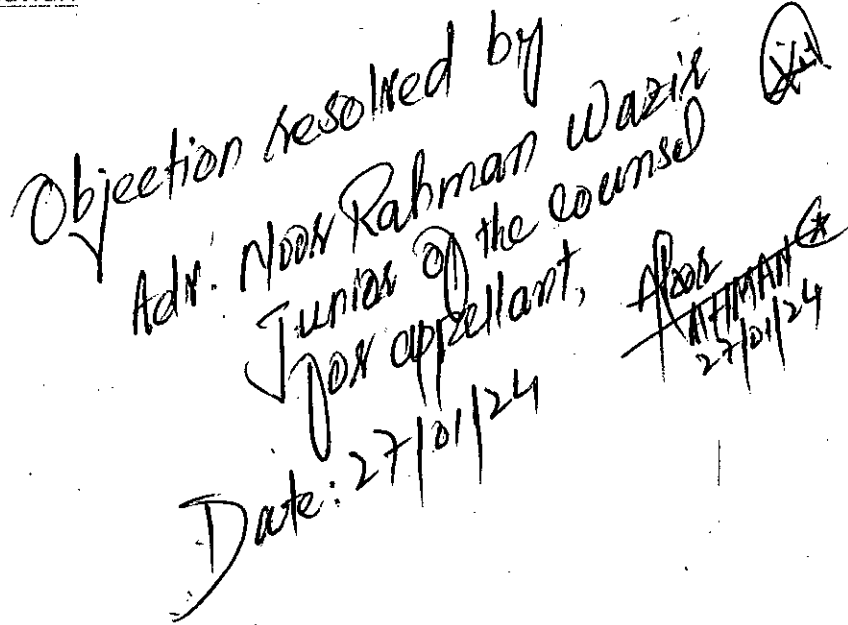 Objection resolved by
Adv. Noor Rahman Wazir
Junior of the counsel
for appellant,
Date: 27/01/24
Noor
27/01/24